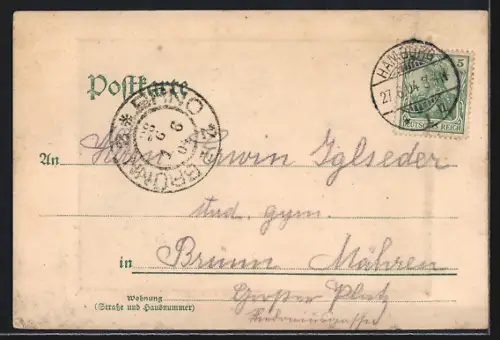 Postkarte
HAMBURG
27.6.04. 3-4N
5
DEUTSCHES REICH
BRÜNN BRNO
An Herrn Erwin Iglseder
stud. gym.
in Brünn Mähren
Wohnung Großer Platz
(Straße und Hausnummer)